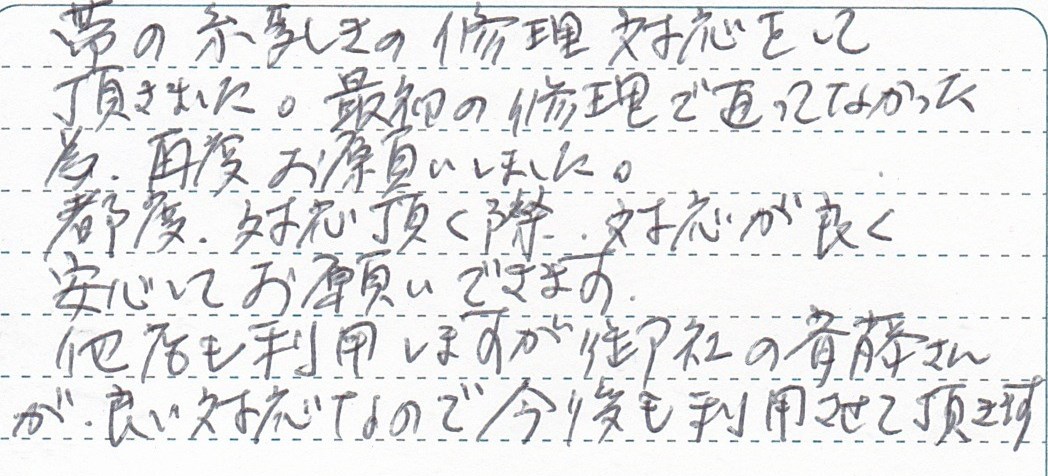 帯の糸乱れの修理対応をして
頂きました。最初の修理で直ってなかった
為、再度お願いしました。
都度、対応頂く際、対応が良く
安心してお願いできます。
他店も利用しますが御社の斉藤さん
が、良い対応なので今後も利用させて頂きます